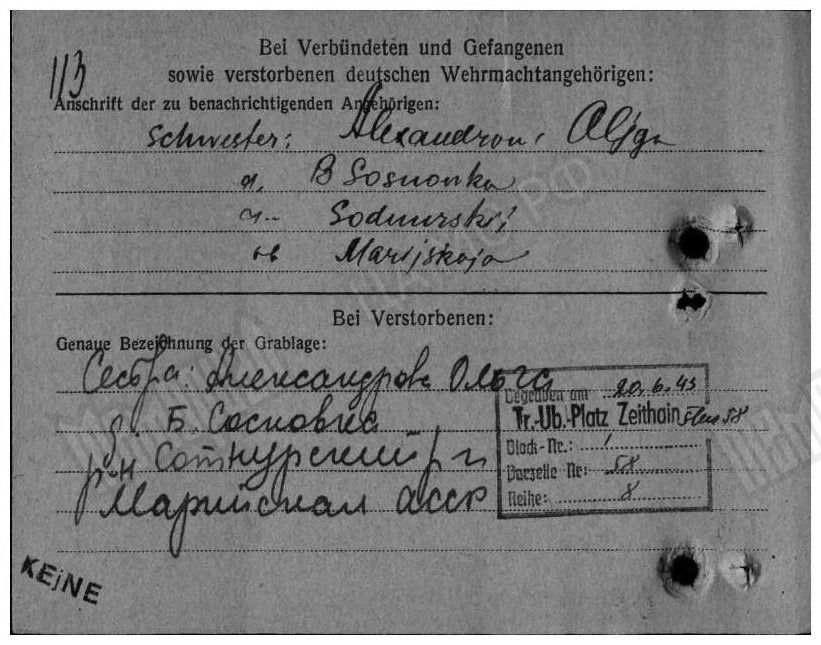 113
Bei Verbündeten und Gefangenen
sowie verstorbenen deutschen Wehrmachtangehörigen:
Anschrift der zu benachrichtigenden Angehörigen:
Schwester: Alexandrow, Oljga
d. B Sosnowka
Marijskaja
Bei Verstorbenen:
Genaue Bezeichnung der Grablage:
Сестра: Александрова Ольга
д. Б. Сосновка
р-н Сотнурский
Марийская АССР
Begraben am 20.6.43
Tr.-Ub.-Platz Zeithain
Block-Nr.: 1
Parzelle Nr: 58
Reihe: 8
KEiNE